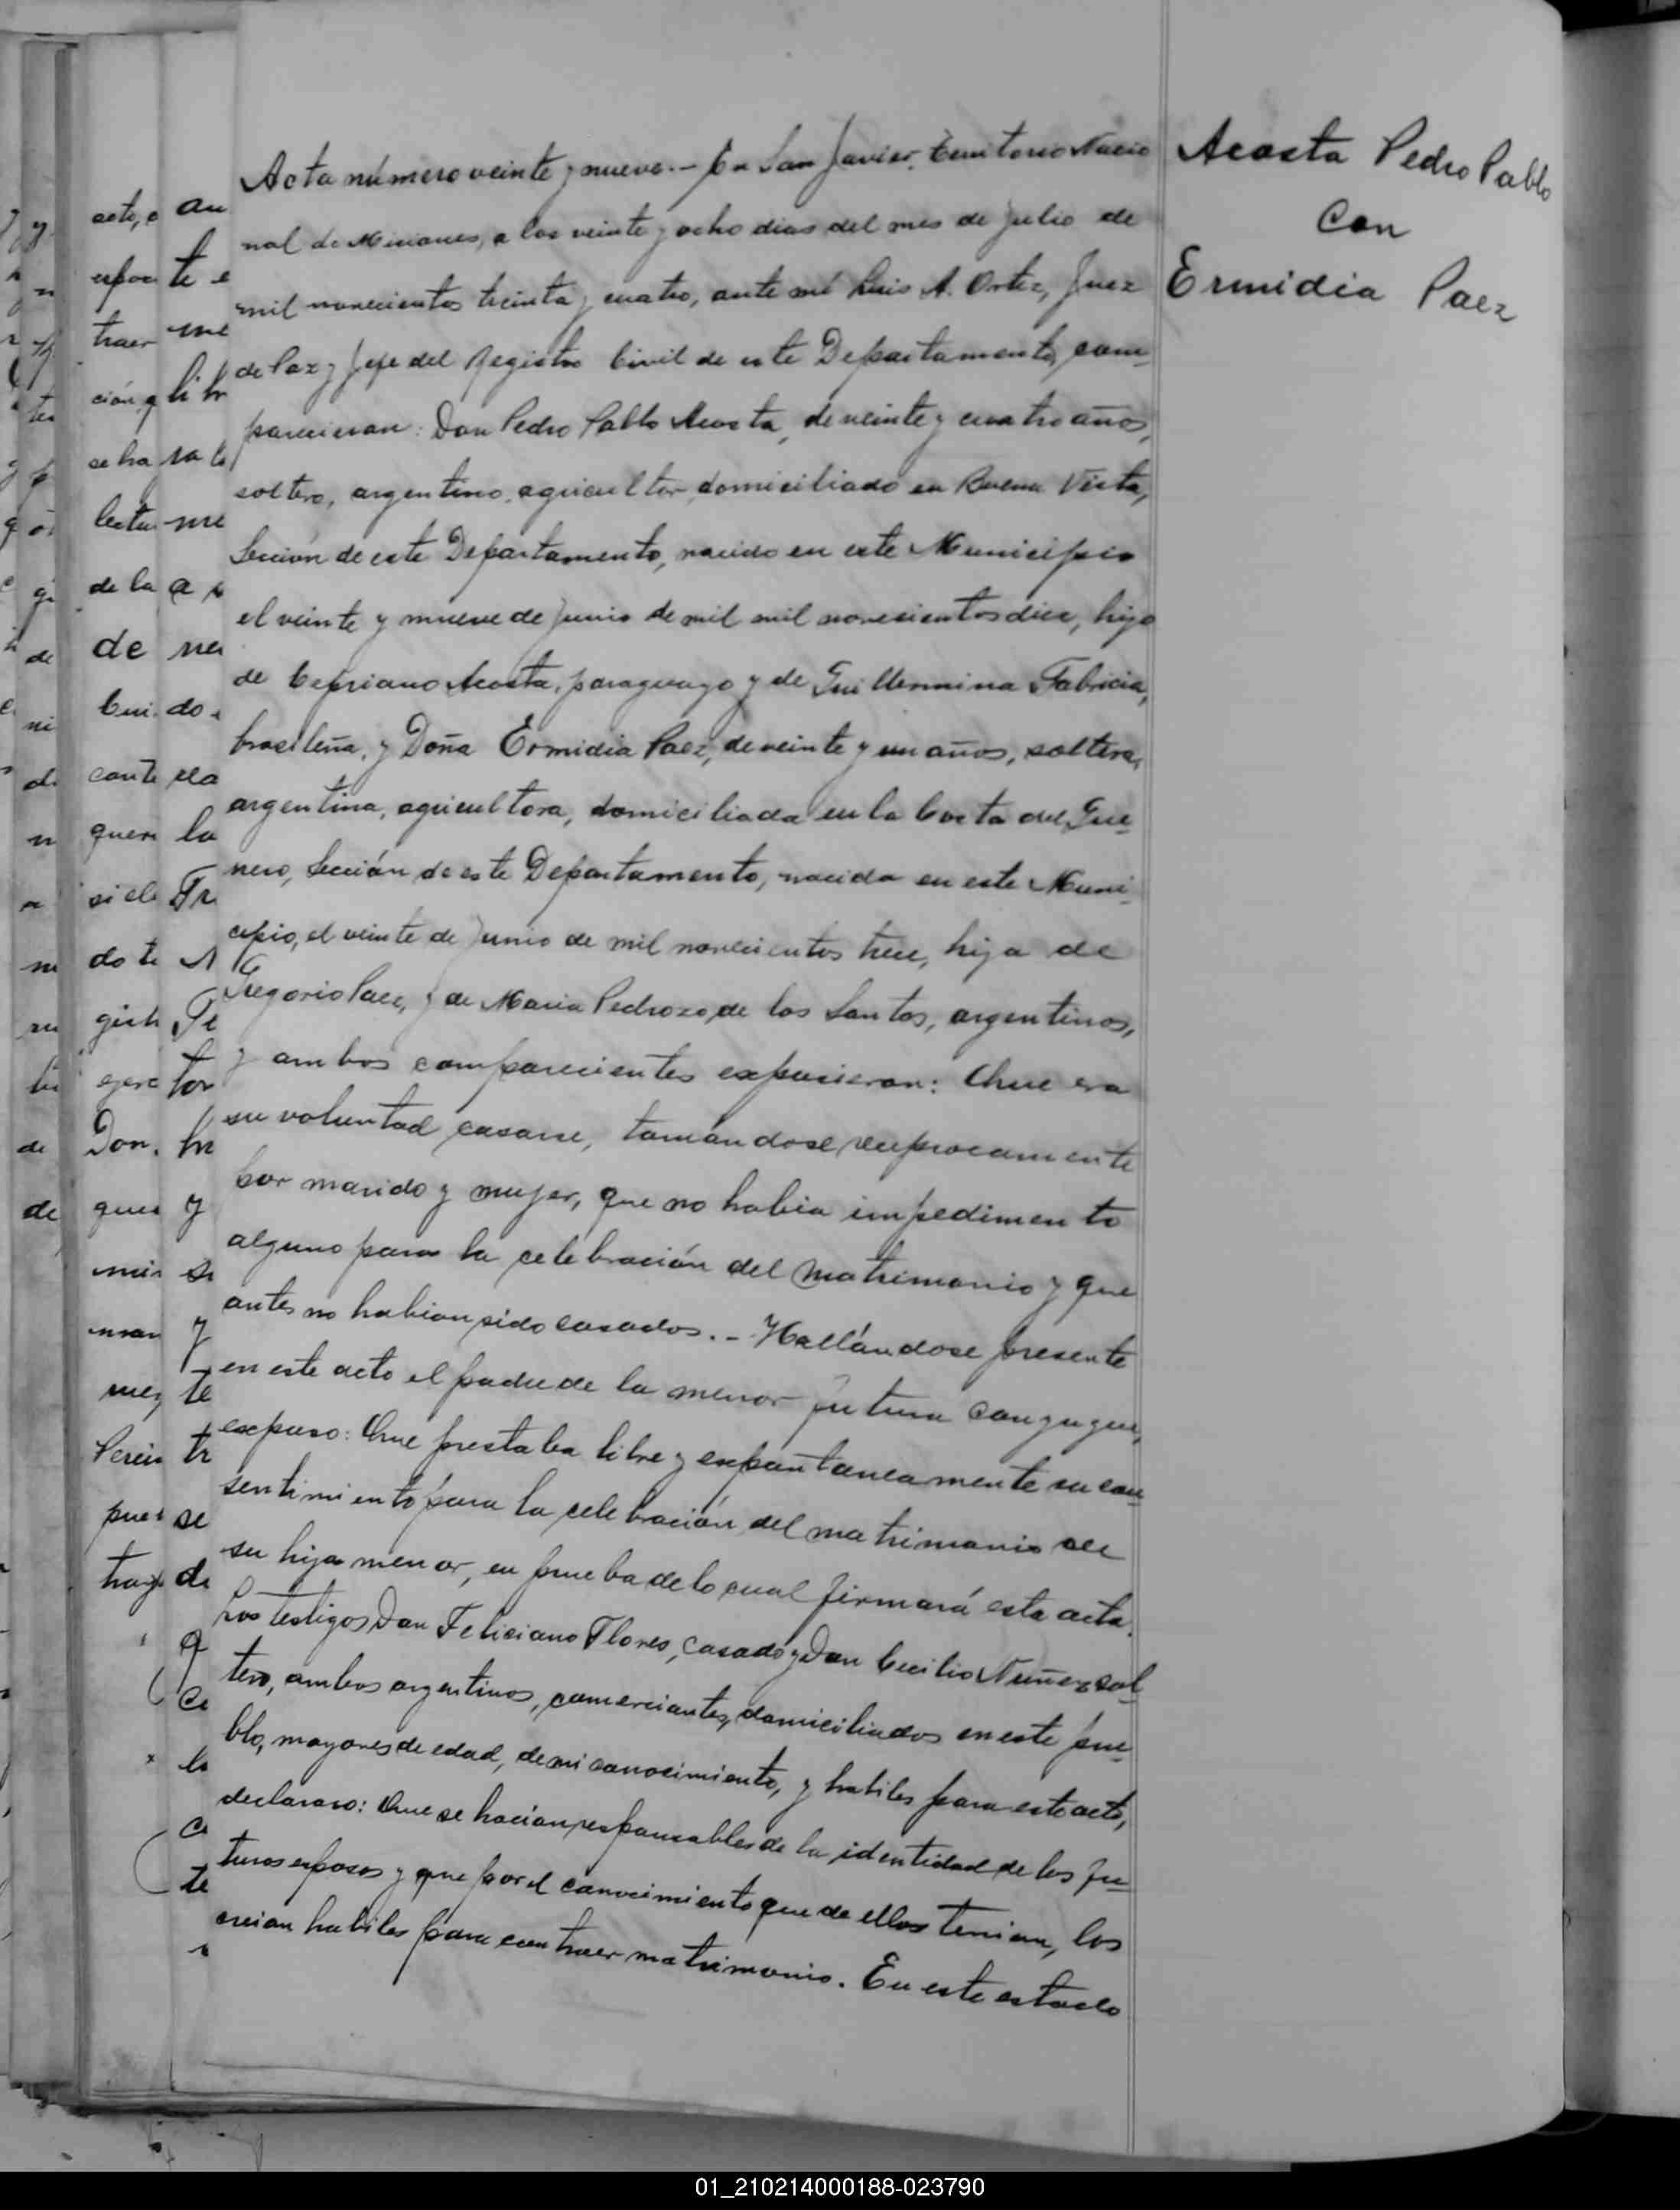 Acta número veinte y nueve.- En San Javier, Territorio Nacio
nal de Misiones, a los veinte y ocho dias del mes de Julio de
mil novecientos treinta y cuatro, ante mí Luis A. Ortiz, Juez
de Paz y Jefe del Registro Civil de este Departamento, com-
parecieron: Don Pedro Pablo Acosta, de veinte y cuatro años,
soltero, argentino, agricultor, domiciliado en Buena Vista,
Sección de este Departamento, nacido en este Municipio
el veinte y nueve de Junio de mil mil novecientos diez, hijo
de Cepriano Acosta, paraguayo y de Guillermina Fabricia,
brasileña, y Doña Ermidia Paez, de veinte y un años, soltera,
argentina, agricultora, domiciliada en la Costa del Gue-
rrero, Sección de este Departamento, nacida en este Muni-
cipio, el veinte de Junio de mil novecientos trece, hija de
Gregorio Paez, y de Maria Pedrozo de los Santos, argentinos,
y ambos comparecientes expusieron: Que era
su voluntad casarse, tomándose reciprocamente
por marido y mujer, que no habia impedimento
alguno para la celebración del matrimonio y que
antes no habian sido casados.- Hallándose presente
en este acto el padre de la menor futura conyugue,
expuso: Que prestaba libre y expontaneamente su con-
sentimiento para la celebración del matrimonio de
su hija menor, en prueba de lo cual firmará esta acta.
Los testigos Don Feliciano Flores, casado y Don Cecilio Nuñez, sol-
tero, ambos argentinos, comerciantes, domiciliados en este pue-
blo, mayores de edad, de mi conocimiento, y habiles para este acto,
declararo: Que se hacian responsables de la identidad de los fu-
turos esposos y que por el conocimiento que de ellos tenian, los
creian habiles para contraer matrimonio. En este estado
Acosta Pedro Pablo
con
Ermidia Paez
01_210214000188-023790